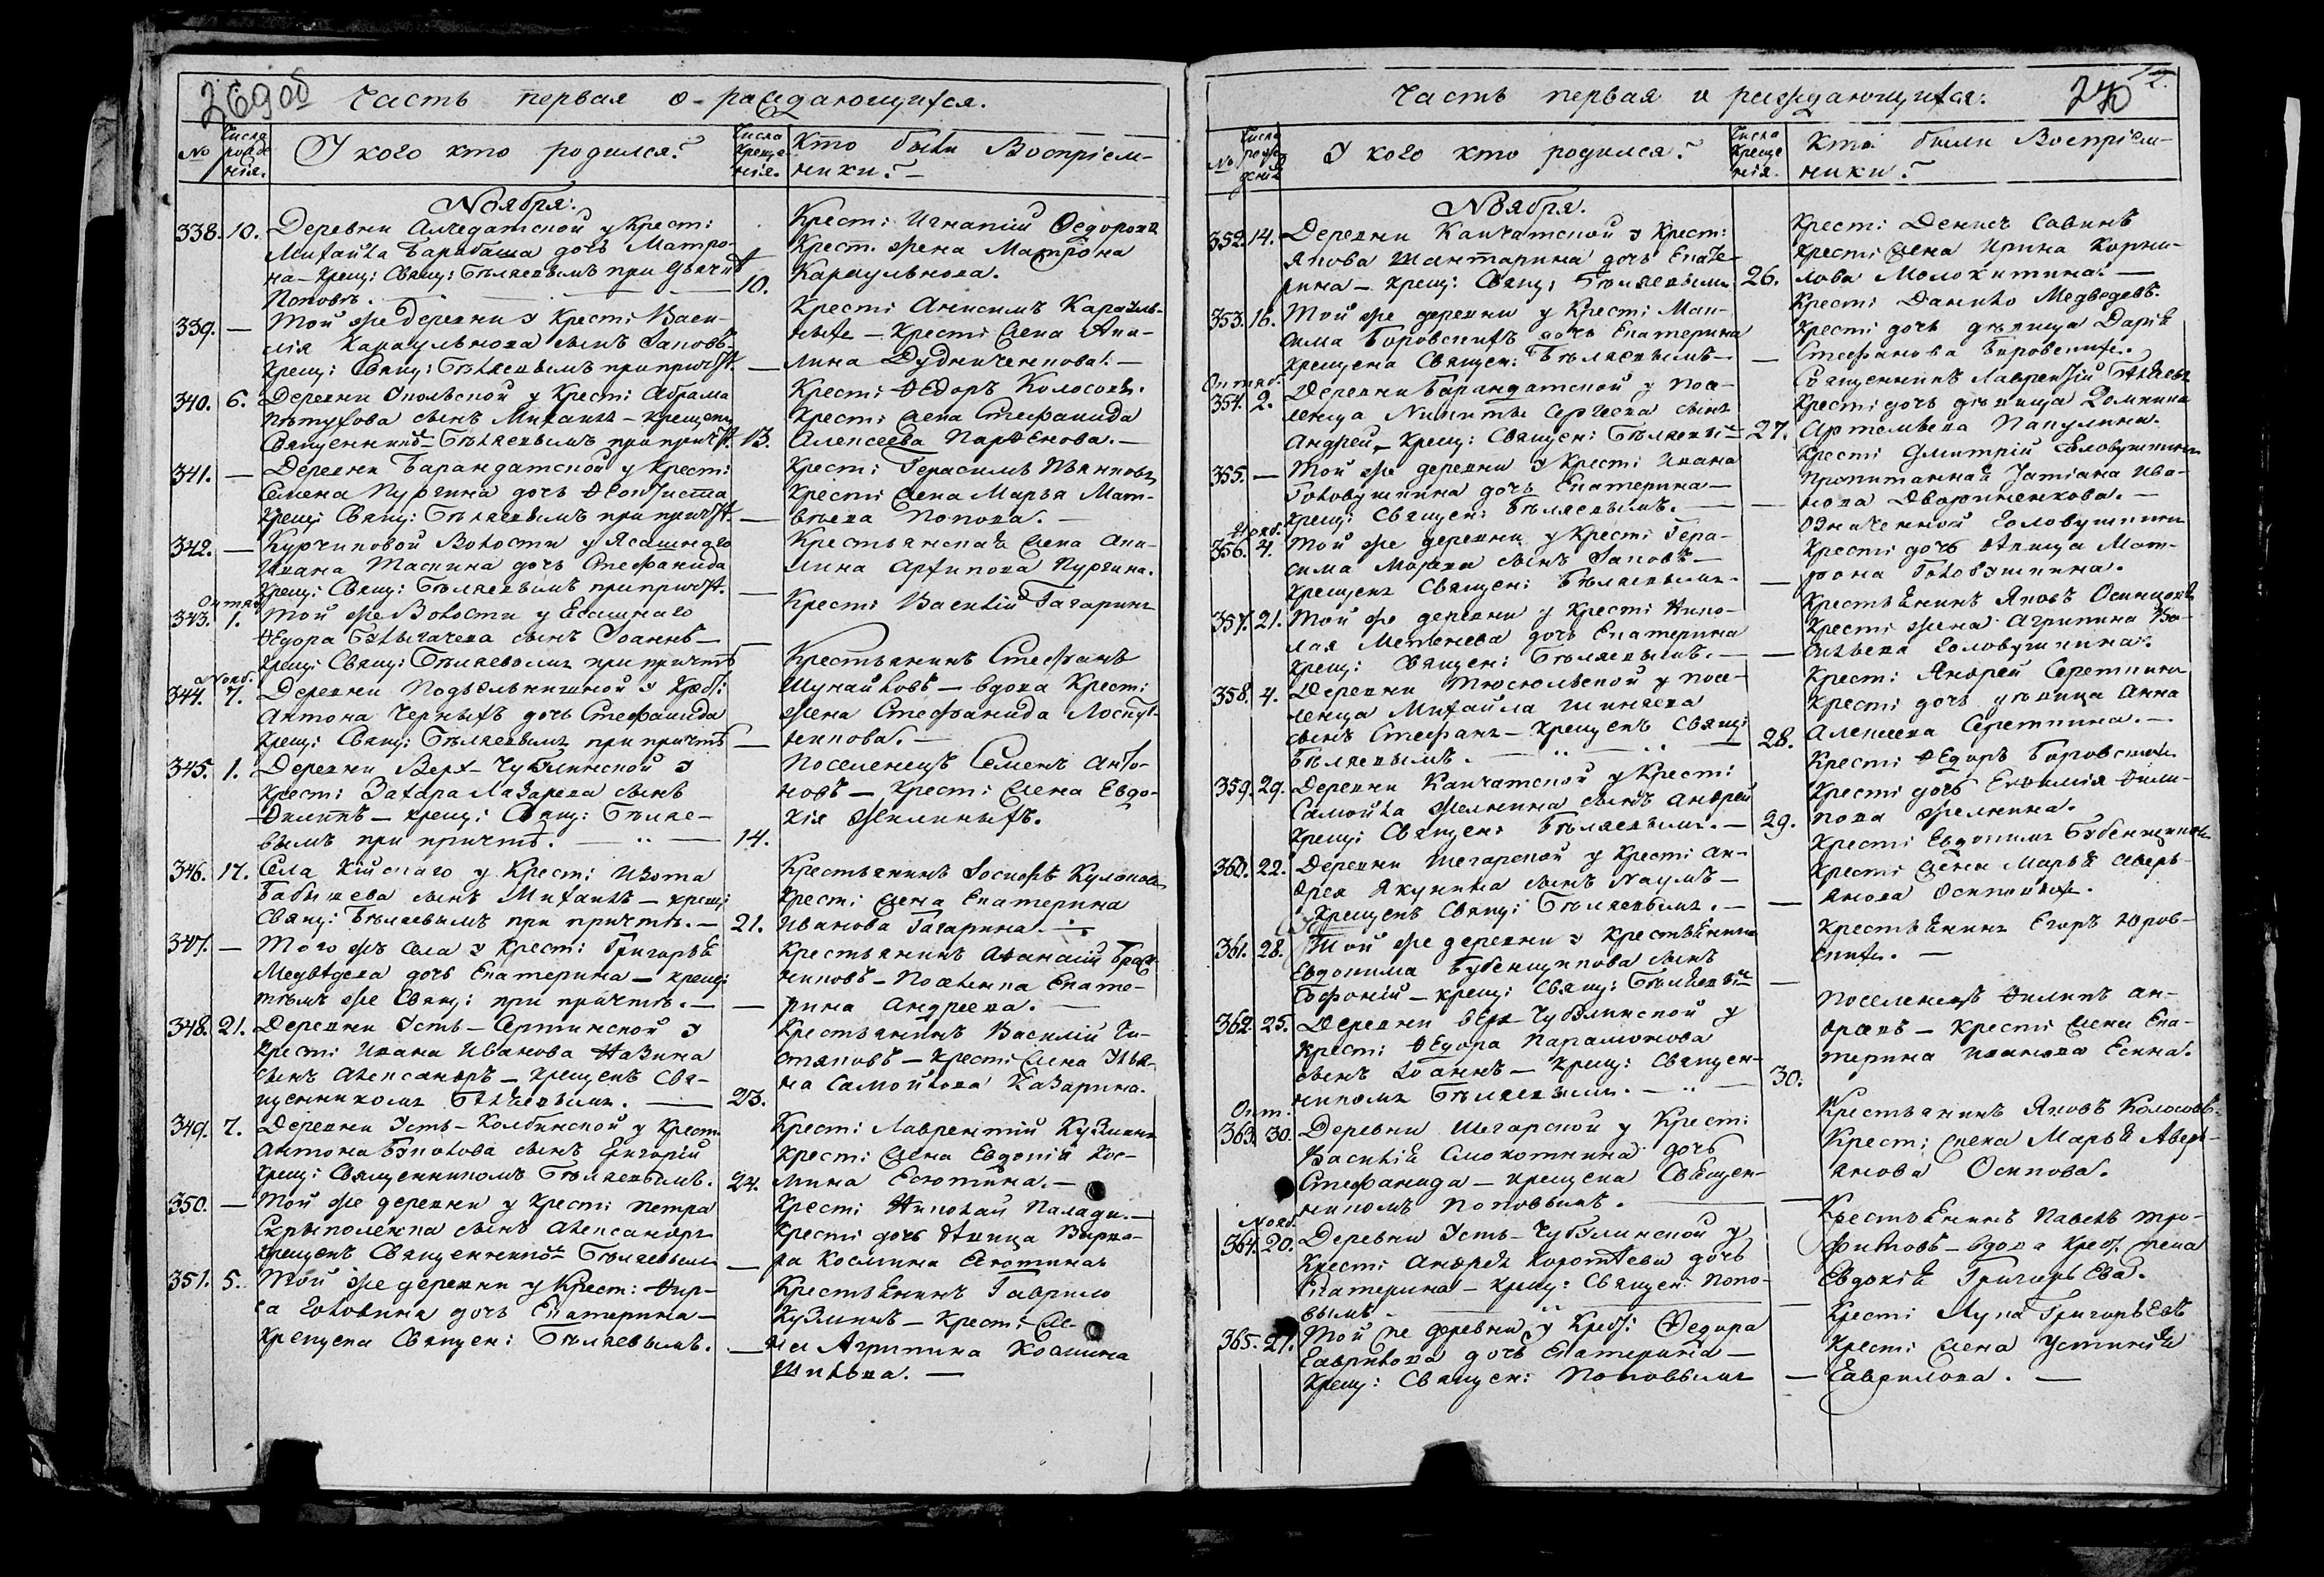 269об
Часть первая о раждающихся.
№
Числа рожденія.
У кого кто родился?
Числа крещенія.
Кто были Воспріем-
ники? —
Ноября:
338. 10. Деревни у Крест:
Михайла Барабаша дочь Матро-
на — крещ: Свящ: Бѣляевымъ при Дьячкѣ
Поповѣ. — 10.
Крест: Игнатий Ѳедоровъ
Крест. жена Матрона
Караульнова.
339. — Той же деревни у Крест: Васи-
лія Караульнова сынъ Іаковъ —
крещ: Свящ: Бѣляевымъ при причт. —
Крест: Анисимъ Карауль-
ныхъ — Крест: жена Аки-
лина Дудниченкова. —
340. 6. Деревни у Крест: Абрама
Пѣтухова сынъ Михаилъ — крещенъ
Священникомъ Бѣляевымъ при причт. 13.
Крест: Ѳедоръ Колосовъ.
Крест: жена Стефанида
Алексеева Парѳенова. —
341. — Деревни Барандатской у Крест:
Семена Пургина дочь Ѳеоктиста
крещ: Свящ: Бѣляевымъ при причт. —
Крест: Герасимъ
Крест: жена Марья Мат-
вѣева Попова. —
342. — Курчиковой Волости у Ясашнаго
Ивана Таскина дочь Стефанида
крещ: Свящ: Бѣляевымъ при причт. —
Крестьянская жена Аки-
лина Архипова Пургина.
Октяб.
343. 1. Той же Волости у Есашнаго
Ѳедора сынъ Іоаннъ —
крещ: Свящ: Бѣляевымъ при причтѣ —
Крест: Василій Гагаринъ
Нояб.
344. 7. Деревни Подъельничной у Крест:
Антона Черныхъ дочь Стефанида
крещ: Свящ: Бѣляевымъ при причтѣ —
Крестьянинъ Стефанъ
Шунайловъ — вдова Крест:
жена Стефанида Лоскут-
никова. —
345. 1. Деревни Верх-Чубулинской у
Крест: Захара Лазарева сынъ
Филиппъ — крещ: Свящ: Бѣляе-
вымъ при причтѣ. — 14.
Поселенецъ Семенъ Анто-
новъ — Крест: жена Евдо-
кія Жилиныхъ.
346. 17. Села Кійскаго у Крест: Изота
Бабышева сынъ Михаилъ — крещ:
Свящ: Бѣляевымъ при причтѣ. — 21.
Крестьянинъ Іосифъ
Крест: жена Екатерина
Иванова Гагарина. —
347. — Того жъ села у Крест: Григорья
Медвѣдева дочь Екатерина — крещ:
тѣмъ же Свящ: при причтѣ. —
Крестьянинъ Афанасій
— Поселенка Екате-
рина Андреева. —
348. 21. Деревни Усть-Сертинской у
Крест: Ивана Иванова Казина
сынъ Александръ — крещенъ Свя-
щенникомъ Бѣляевымъ. — 23.
Крестьянинъ Василій Чи-
стяковъ — Крест: жена Улья-
на Самойлова Казарина.
349. 7. Деревни Усть-Колбинской у Крест.
Антона сынъ Григорій
крещ: Священникомъ Бѣляевымъ. 24.
Крест: Лаврентій Кузминъ
Крест: жена Евдокія Кос-
мина Есютина. —
350. — Той же деревни у Крест: Петра
Скрыполенка сынъ Александръ
крещенъ Священникомъ Бѣляевымъ —
Крест: Николай Палади. —
Крест: дочь дѣвица Варва-
ра Космина Есютина
351. 5. Той же деревни у Крест: Кир-
са Головина дочь Екатерина —
крещена Священ: Бѣляевымъ. —
Крестьянинъ Гаврило
Кузминъ — Крест: же-
на Агрипина Космина
Шилова. —
270
Часть первая о раждающихся:
№
Числа рожденія
У кого кто родился?
Числа крещенія.
Кто были Воспріем-
ники?
Ноября.
352. 14. Деревни Камчатской у Крест:
Якова Шантарина дочь Екате-
рина — крещ: Свящ: Бѣляевымъ 26.
Крест: Денисъ Савинъ
Крест: жена Ирина Корни-
лова Молокитина. —
353. 16. Той же деревни у Крест: Мак-
сима Боровскихъ дочь Екатерина
крещена Священ: Бѣляевымъ — —
Крест: Данило Медведевъ.
Крест: дочь дѣвица Дарія
Стефанова Боровскихъ.
Октяб.
354. 2. Деревни Барандатской у посе-
ленца Никиты Сергеева сынъ
Андрей — крещ: Священ: Бѣляевымъ 27.
Священникъ Лаврентій Бѣляевъ
Крест: дочь дѣвица Домника
Артемьева Пакулина.
355. — Той же деревни у Крест: Ивана
Головушкина дочь Екатерина —
крещ: Священ: Бѣляевымъ. — —
Крест: Дмитрій Головушкинъ
Пропитанная Татіана Ива-
нова Дворниченкова. —
Нояб.
356. 4. Той же деревни у Крест: Гера-
сима сынъ Іаковъ —
крещенъ Священ: Бѣляевымъ — —
Означенной Головушкинъ
Крест: дочь дѣвица Мат-
рона Головушкина.
357. 21. Той же деревни у Крест: Нико-
лая Метенева дочь Екатерина
крещ: Священ: Бѣляевымъ. — —
Крестьянинъ Яковъ Осинцовъ
Крест: жена Агрипина Ва-
сильева Головушкина.
358. 4. Деревни Тюсюльской у посе-
ленца Михайла Шиняева
сынъ Стефанъ — крещенъ Свящ:
Бѣляевымъ. — 28.
Крест: Андрей Сереткинъ
Крест: дочь дѣвица Анна
Алексеева Сереткина. —
359. 29. Деревни Камчатской у Крест:
Самойла Желнина сынъ Андрей
крещ: Священ: Бѣляевымъ. — 29.
Крест: Ѳедоръ Боровскихъ
Крест: дочь Евфимія Фили-
пова Желнина.
360. 22. Деревни Шегарской у Крест: Ан-
дрея Якунина сынъ Наумъ —
крещенъ Свящ: Бѣляевымъ. — —
Крест: Евдокимъ Бубенщиковъ
Крест: жена Марья Аверь-
янова Осиповыхъ.
361. 28. Той же деревни у Крестьянина
Евдокима Бубенщикова сынъ
Софоній — крещ: Свящ: Бѣляевымъ —
Крестьянинъ Егоръ Юров-
скихъ. —
362. 25. Деревни Верх-Чубулинской у
Крест: Ѳедора Парамонова
сынъ Іоаннъ — крещ: Священ-
никомъ Бѣляевымъ. — 30.
Поселенецъ Филипъ Ан-
дреевъ — Крест: жена Ека-
терина Иванова Есина.
Окт.
363. 30. Деревни Шегарской у Крест:
Василія Смокотнина дочь
Стефанида — крещена Священ-
никомъ Поповымъ. — —
Крестьянинъ Яковъ Колосовъ —
Крест: жена Марья Аверь-
янова Осипова.
Нояб.
364. 20. Деревни Усть-Чубулинской у
Крест: Андрея Коротаева дочь
Екатерина — крещ: Священ: Попо-
вымъ — —
Крестьянинъ Павелъ Тро-
фимовъ — вдова Крест. жена
Евдокія Григорьева.
365. 27. Той же деревни у Крест: Ѳедора
Гаврилова дочь Екатерина —
Крещ: Священ: Поповымъ —
Крест: Лука Григорьевъ
Крест: жена Устинія
Гаврилова. —